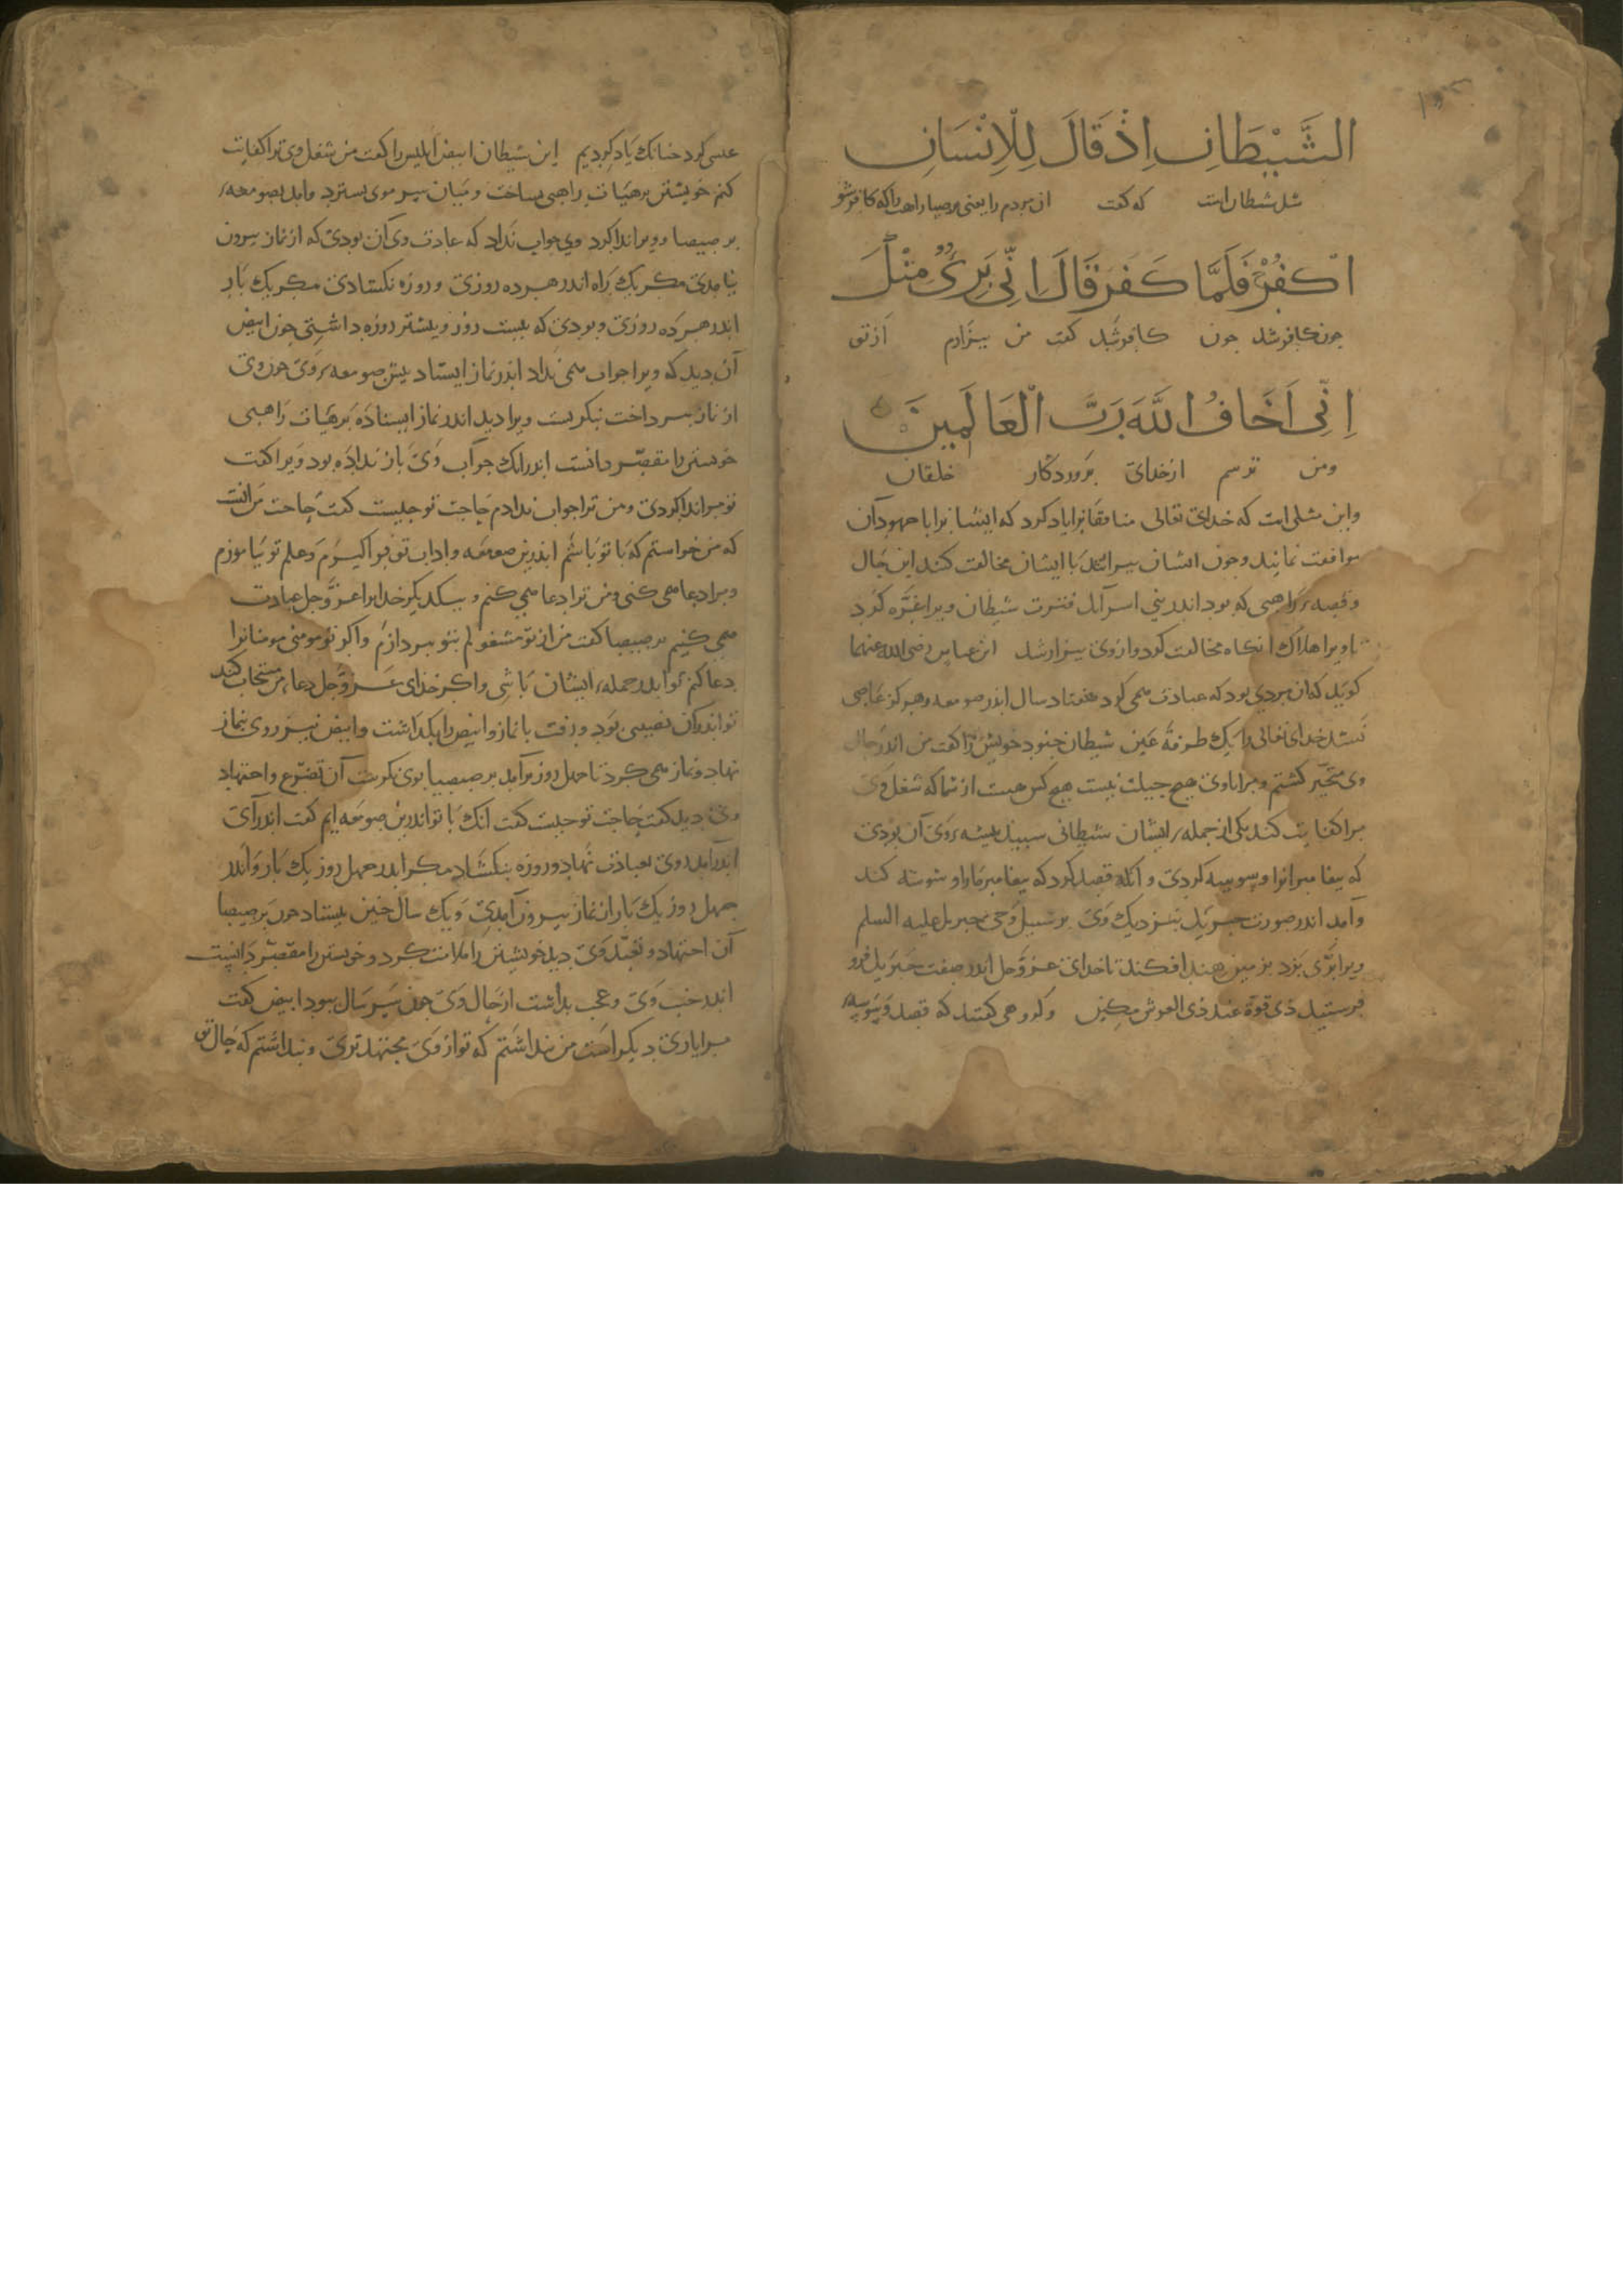 الشَّيْطَانِ اِذْ قَالَ لِلْاِنْسَانِ
مثل شیطان است که گفت آن مردم را یعنی برصیصا راهب را که کافر شو
اكْفُرْ فَلَمَّا كَفَرَ قَالَ اِنِّي بَرِيءٌ مِنْكَ
چون کافر شد چون کافر شد گفت من بیزارم از تو
اِنِّي اَخَافُ اللَّهَ رَبَّ الْعَالَمِينَ
ومن ترسم ازخدای پروردگار خلقان
واین مثلی است که خدای تعالی منافقانرا یاد کرد که ایشانرا با جهودان
موافقت نمایند وچون ایشان بیرون با ایشان مخالفت کنند این حال
وقصهٔ راهبی که بود اندر بنی اسرائیل فترت شیطان ویرا غره کرد
تا ویرا هلاک انگاه مخالفت کرد وازوی بیزار شد ابن عباس رضی الله عنهما
گوید که ان مردی بود که عبادت می کرد هفتاد سال اندر صومعه وهرگز عاصی
نشد خدای تعالی را یک طرفة عین شیطان جنود خویش را گفت من اندر حال
وی متحیر گشتم ومرا باوی هیچ حیلت نیست هیچ کس هست از شما که شغل وی
مرا کفایت کند یکی از جملهٔ ایشان شیطانی سپید پیشهٔ وی آن بودی
که پیغامبرانرا وسوسه کردی و قصد کرد که پیغامبر مارا وسوسه کند
وآمد اندر صورت جبریل بنزدیک وی بر سبیل وحی جبریل علیه السلم
ویرا بزد بزمین هند افکند تا خدای عز وجل اندر صفت جبریل فرو
فرستید ذی قوة عند ذی العرش مکین وگروهی گفتند که قصد وسوسهٔ
عیسی کرد چنانک یاد کردیم این شیطان ابیض ابلیس را گفت من شغل وی ترا کفایت
کنم خویشتن برهیأت راهبی ساخت ومیان سر موی بسترد وآمد بصومعهٔ
برصیصا وویرا ندا کرد وی جواب نداد که عادت وی آن بودی که از نماز بیرون
نیامدی مگر یک راه اندر هر ده روزی وروزه نگشادی مگر یک بار
اندر هر ده روزی وبودی که بیست روز وبیشتر روزه داشتی چون ابیض
آن بدید که ویرا جواب می نداد اندر نماز ایستاد پیش صومعهٔ وی چون وی
از نماز بپرداخت بنگریست ویرا دید اندر نماز ایستاده برهیأت راهبی
خویشتن را مقصر دانست اندر انک جواب وی باز نداده بود ویرا گفت
تو مرا ندا کردی ومن ترا جواب ندادم حاجت تو چیست گفت حاجت من انست
که من خواستم که با تو باشم اندرین صومعه واداب تو فرا گیرم وعلم تو بیاموزم
ومرا دعا می کنی ومن ترا دعا می کنم وبیکدیگر خدایرا عز وجل عبادت
می کنیم برصیصا گفت من از تو مشغولم بتو نپردازم واگر تو مومنی مومنانرا
دعا کنم تو اندر جملهٔ ایشان باشی واگر خدای عز وجل دعاء من مستجاب کند
ترا اندران نصیبی بود ورفت با نماز وابیض را بگذاشت وابیض نیز روی بنماز
نهاد ونماز می کرد تا چهل روز برآمد برصیصا بوی نگرست آن تضرع واجتهاد
وی بدید گفت حاجت تو چیست گفت آنک با تو اندرین صومعه ایم گفت اندرآی
اندرآمد وی بعبادت نهاد وروزه بنگشاد مگر اندر چهل روز یک بار واندر
چهل روز یک بار ازان نماز بیرون آمدی ویک سال چنین بیستاد چون برصیصا
آن اجتهاد وتعبد وی بدید خویشتن را ملامت کرد وخویشتن را مقصر دانست
اندر جنب وی وعجب بداشت از حال وی چون سر سال ببود ابیض گفت
مرا یاری دیگر است من پنداشتم که تو از وی مجتهدتری وپنداشتم که حال تو